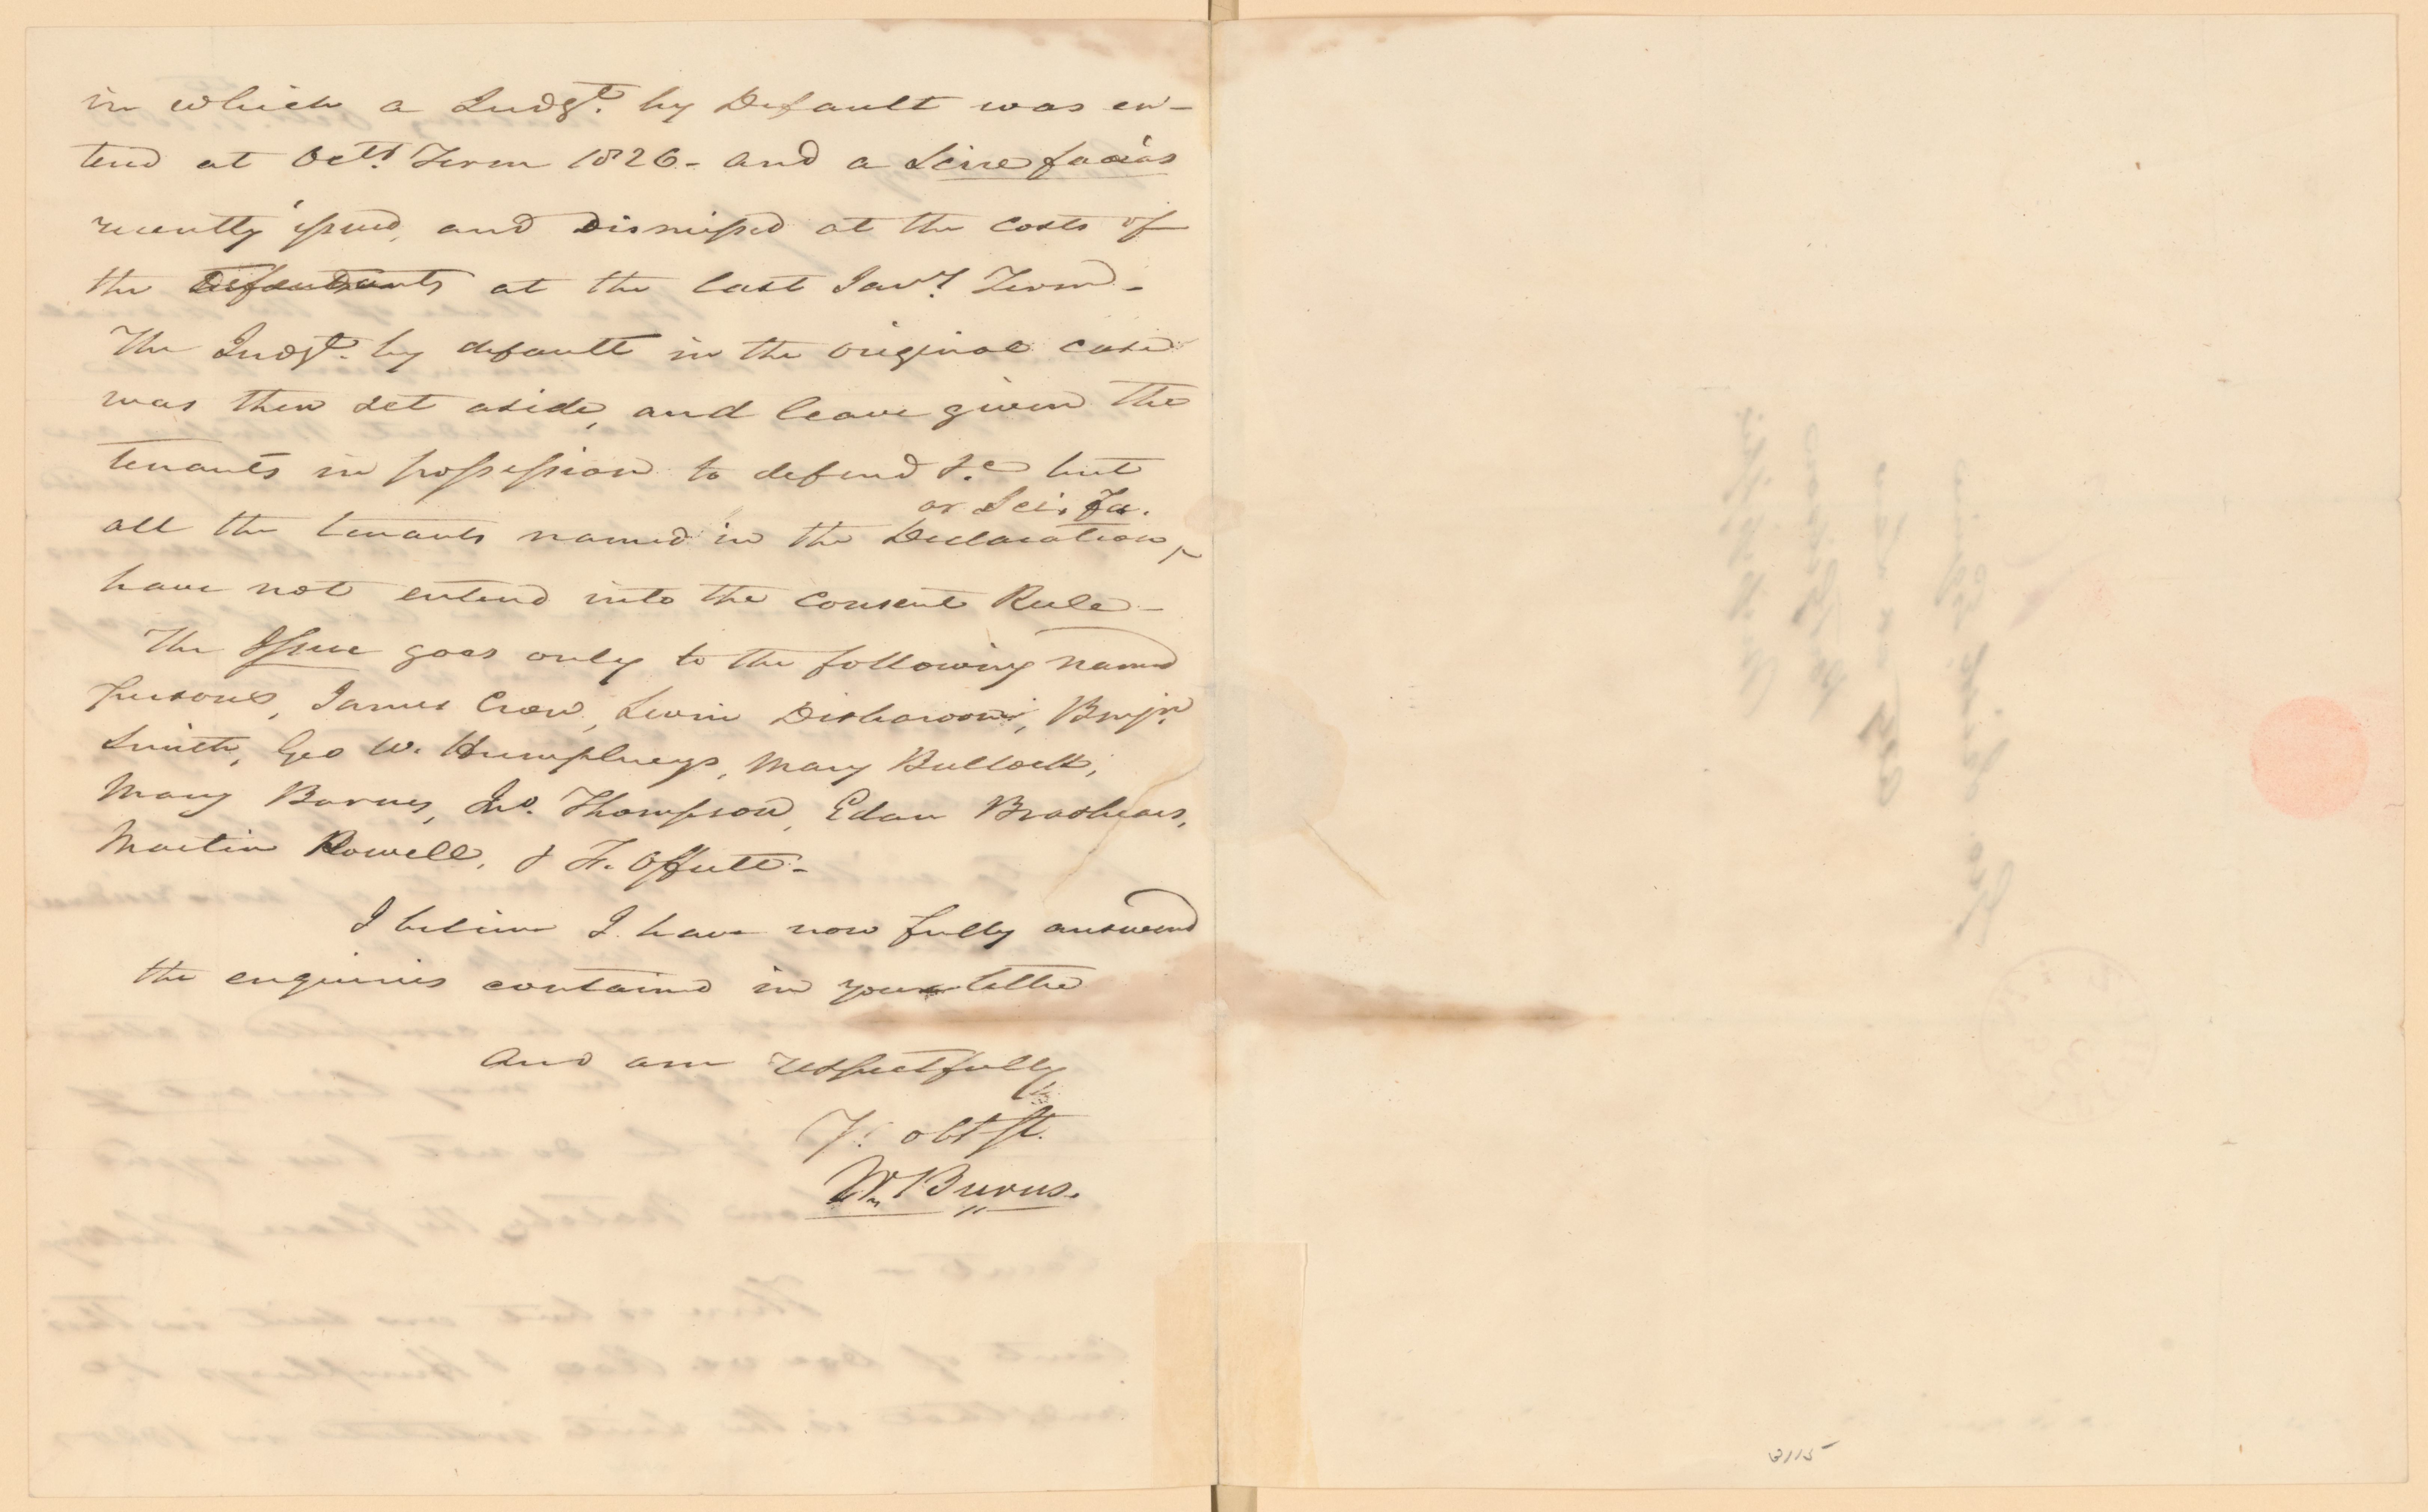 in which a Judgt. by Default was en-
tered at Octr. Term 1826 - and a Scire facias
recently issued, and dismissed at the costs of
the Defendants at the last Jany. Term -
The Judgt. by default in the original case
was then set aside, and leave given the
tenants in possession to defend &c but
or Sci. Fa.
all the tenants named in the Declaration,
have not entered into the consent Rule -
The Issue goes only to the following named
persons, James Crow, Levin Disharoon, Benjn.
Smith, Geo W. Humphreys, Mary Bullock,
Mary Barnes, Jno. Thompson, Eden Brashears,
Martin Rowell, & F. Offutt. -
I believe I have now fully answered
the enquiries contained in your letter
and am respectfully
Y. obt st.
Wm Burns.
3115